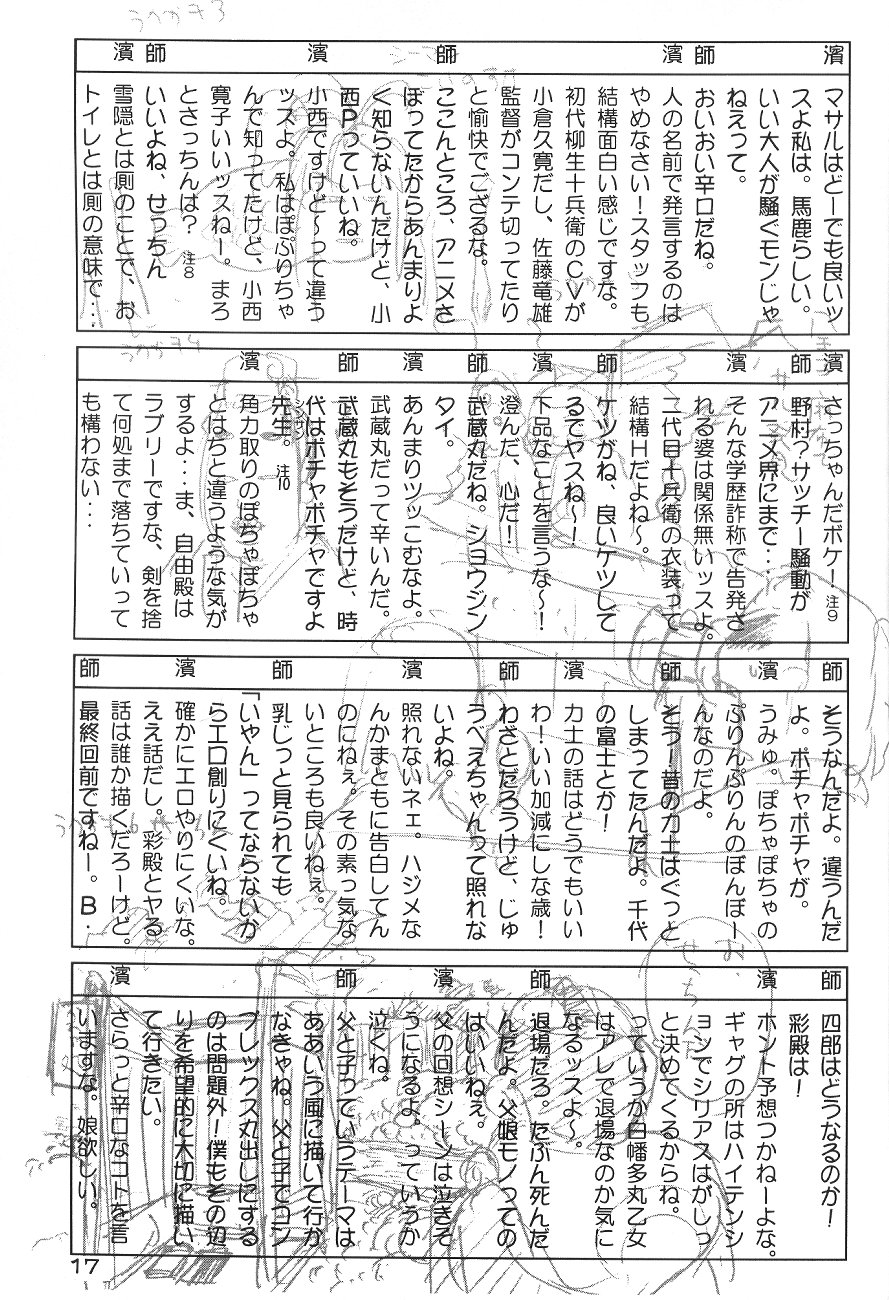 うべえ3
濱　師　濱　師　濱　師　濱
マサルはどーでも良いッ
スよ私は。馬鹿らしい。
いい大人が騒ぐモンじゃ
ねえって。
おいおい辛口だね。
人の名前で発言するのは
やめなさい！スタッフも
結構面白い感じですな。
初代柳生十兵衛のＣＶが
小倉久寛だし、佐藤竜雄
監督がコンテ切ってたり
と愉快でござるな。
ここんところ、アニメさ
ぼってたからあんまりよ
く知らないんだけど、小
西Ｐっていいね。
小西ですけど〜って違う
ッスよ。私はぽぷりちゃ
んで知ってたけど、小西
寛子いいッスねー。まろ
とさっちんは？ 注8
いいよね、せっちん
雪隠とは厠のことで、お
トイレとは厠の意味で・・・
濱　師　濱　師　濱　師　濱　師　濱
さっちゃんだボケ！ 注9
野村？サッチー騒動が
アニメ界にまで・・・
そんな学歴詐称で告発さ
れる姿は関係無いッスよ。
二代目十兵衛の衣装って
結構Ｈだよね〜。
ケツがね、良いケツして
るでヤスね〜！
下品なことを言うな〜！
澄んだ、心だ！
武蔵丸だね。ショウジン
タイ。
あんまりツッこむなよ。
武蔵丸だって辛いんだ。
武蔵丸もそうだけど、時
代はポチャポチャですよ
先生。 注10
シンサン
角力取りのぽちゃぽちゃ
とはちと違うような気が
するよ・・・ま、自由殿は
ラブリーですな、剣を捨
て何処まで落ちていって
も構わない・・・
師　濱　師　濱　師　濱　師　濱　師
そうなんだよ。違うんだ
よ。ポチャポチャが。
うみゅ。ぽちゃぽちゃの
ぷりんぷりんのぼんぼー
んなのだよ。
そう！昔の力士はぐっと
しまってたんだよ。千代
の富士とか！
力士の話はどうでもいい
わ！いい加減にしな歳！
わざとだろうけど、じゅ
うべえちゃんって照れな
いよね。
照れないネェ。ハジメな
んかまともに告白してん
のにねぇ。その素っ気な
いところも良いねぇ。
乳じっと見られても
「いやん」ってならないか
らエロ創りにくいね。
確かにエロやりにくいな。
ええ話だし。彩殿とヤる
話は誰か描くだろーけど。
最終回前ですねー。Ｂ・
師　濱　師　濱　師　濱
四郎はどうなるのか！
彩殿は！
ホント予想つかねーよな。
ギャグの所はハイテンシ
ョンでシリアスはがしっ
と決めてくるからね。
っていうか白幡多丸乙女
はアレで退場なのか気に
なるッスよ〜。
退場だろ。たぶん死んだ
んだよ。父娘モノっての
はいいねぇ。
父の回想シーンは泣きそ
うになるよ。っていうか
泣くね。
父と子っていうテーマは
ああいう風に描いて行か
なきゃね。父と子でコン
プレックス丸出しにする
のは問題外！僕もその辺
りを希望的に大切に描い
て行きたい。
さらっと辛口なコトを言
いますな。娘欲しい。
17